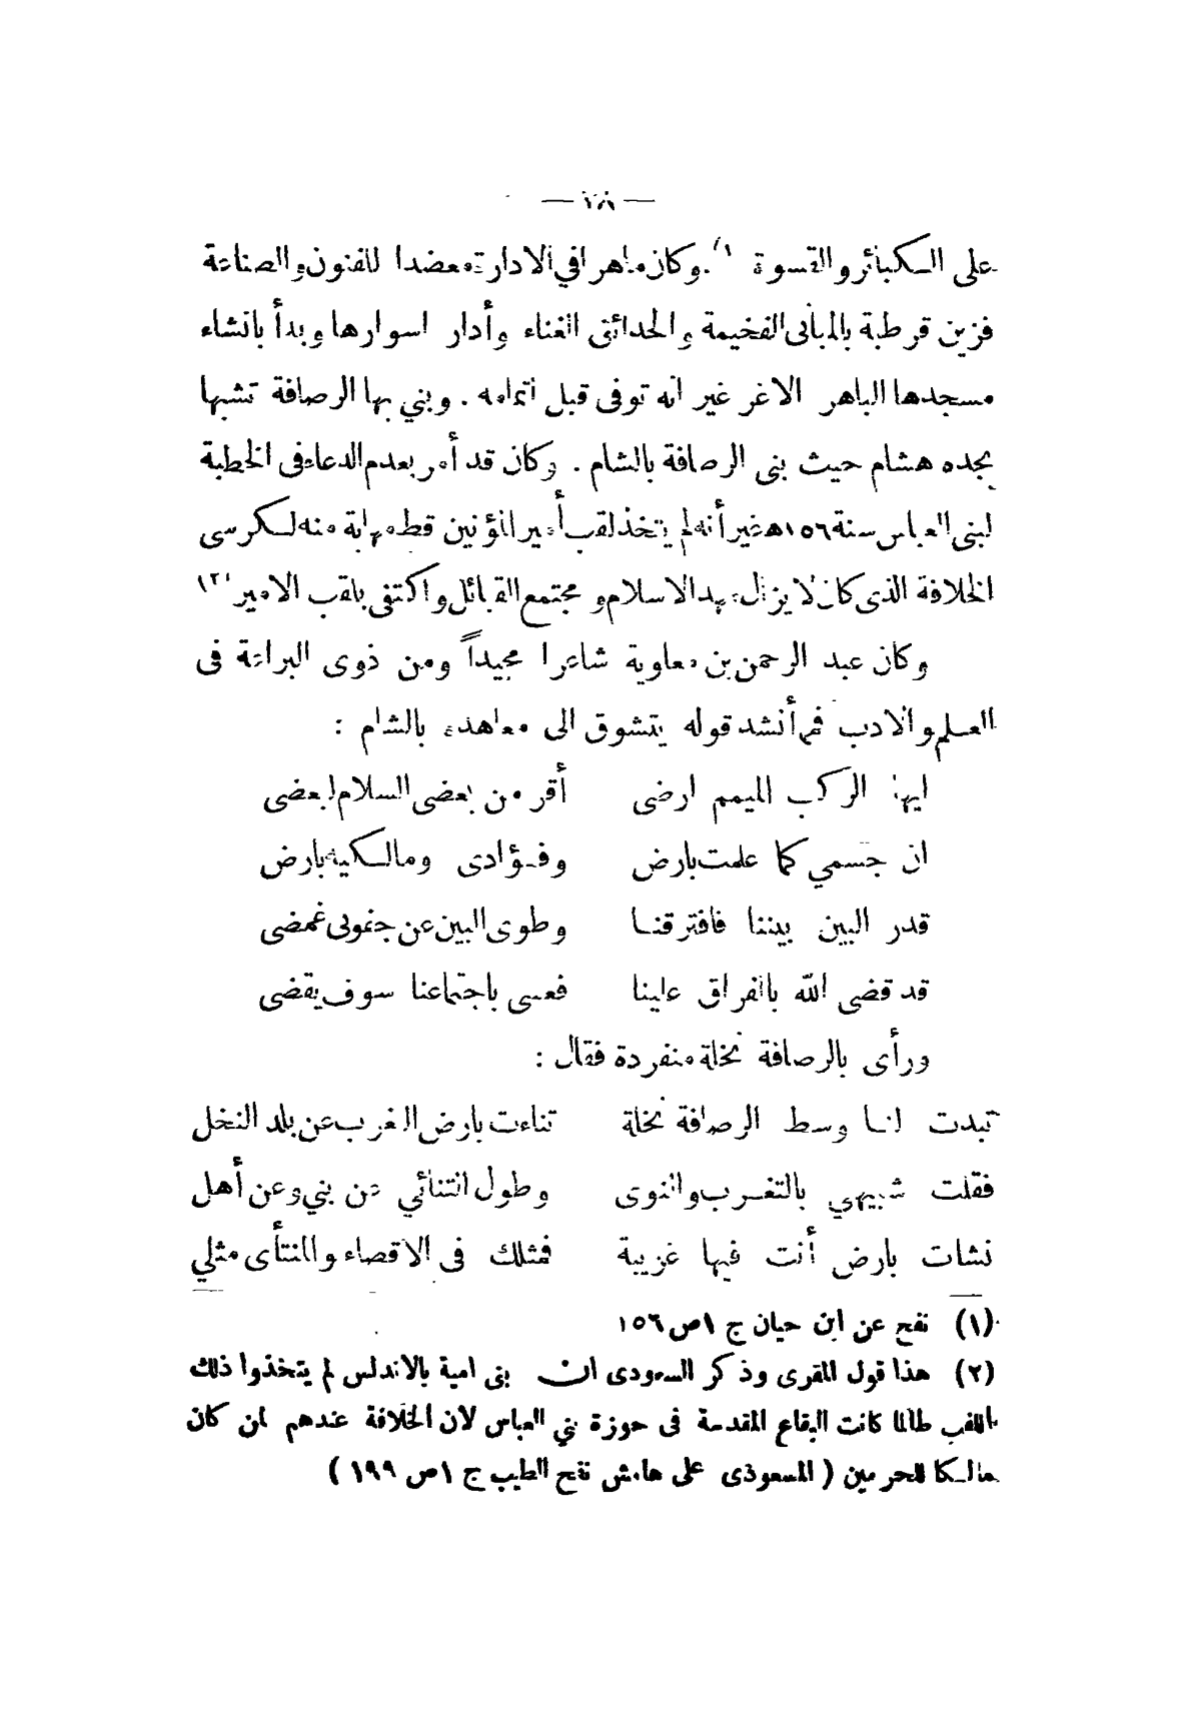 — ٢٨ —
على الكبائر والقسوة (١). وكان ماهرا في الادارة معضدا للفنون والصناعة
فزين قرطبة بالمبانى الفخيمة والحدائق الغناء وأدار اسوارها وبدأ بانشاء
مسجدها الباهر الاغر غير انه توفى قبل اتمامه . وبني بها الرصافة تشبها
بجده هشام حيث بنى الرصافة بالشام . وكان قد أمر بعدم الدعاء فى الخطبة
لبنى العباس سنة ١٥٦ ه غير أنه لم يتخذ لقب أمير المؤمنين قط مهابة منه لكرسى
الخلافة الذى كان لا يزال بيد الاسلام و مجتمع القبائل واكتفى بلقب الامير (٢)
وكان عبد الرحمن بن معاوية شاعرا مجيداً ومن ذوى البراعة فى
العلم والادب فمما أنشد قوله يتشوق الى معاهده بالشام :
ايها الركب الميمم ارضى أقر من بعضى السلام لبعضى
ان جسمي كما علمت بارض وفؤادى ومالكيه بارض
قدر البين بيننا فافترقنا وطوى البين عن جفونى غمضى
قد قضى الله بالفراق علينا فعسى باجتماعنا سوف يقضى
ورأى بالرصافة نخلة منفردة فقال :
تبدت لنا وسط الرصافة نخلة تناءت بارض الغرب عن بلد النخل
فقلت شبيهي بالتغرب والنوى وطول التنائي عن بني وعن أهلى
نشات بارض أنت فيها غريبة فمثلك فى الاقصاء والمنتأى مثلي
(١) نفح عن ابن حيان ج ١ ص ١٥٦
(٢) هذا قول المقرى وذكر المسعودى ان بنى امية بالاندلس لم يتخذوا ذلك
اللقب طالما كانت البقاع المقدسة فى حوزة بني العباس لان الخلافة عندهم لمن كان
مالكا للحرمين ( المسعوذى على هامش نفح الطيب ج ١ ص ١٩٩ )